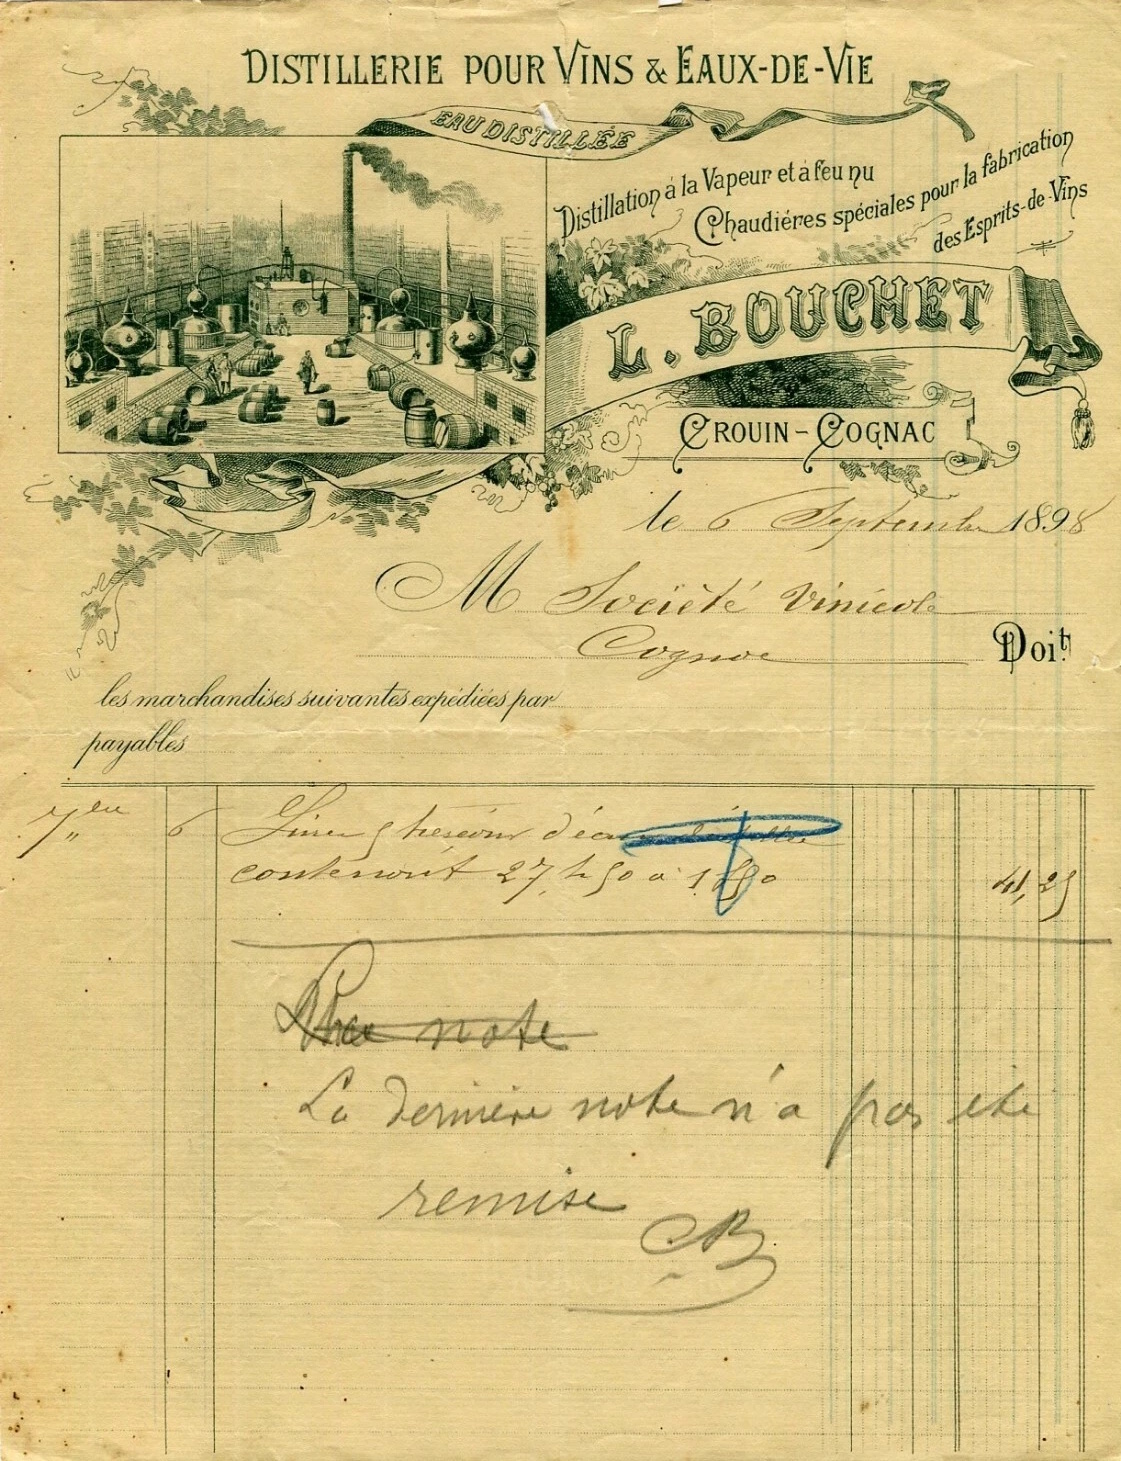 DISTILLERIE POUR VINS & EAUX-DE-VIE
EAU DISTILLÉE
Distillation à la Vapeur et à feu nu
Chaudiéres spéciales pour la fabrication
des Esprits-de-Vins
L. BOUCHET
CROUIN-COGNAC
le 6 Septembre 1898
M Société Vinicole
Cognac
Doit
les marchandises suivantes expédiées par
payables
7bre 6 d'eau distillée
contenant 27,h 50 a 1,50 41,25
note
La dernière note n'a pas été
remise